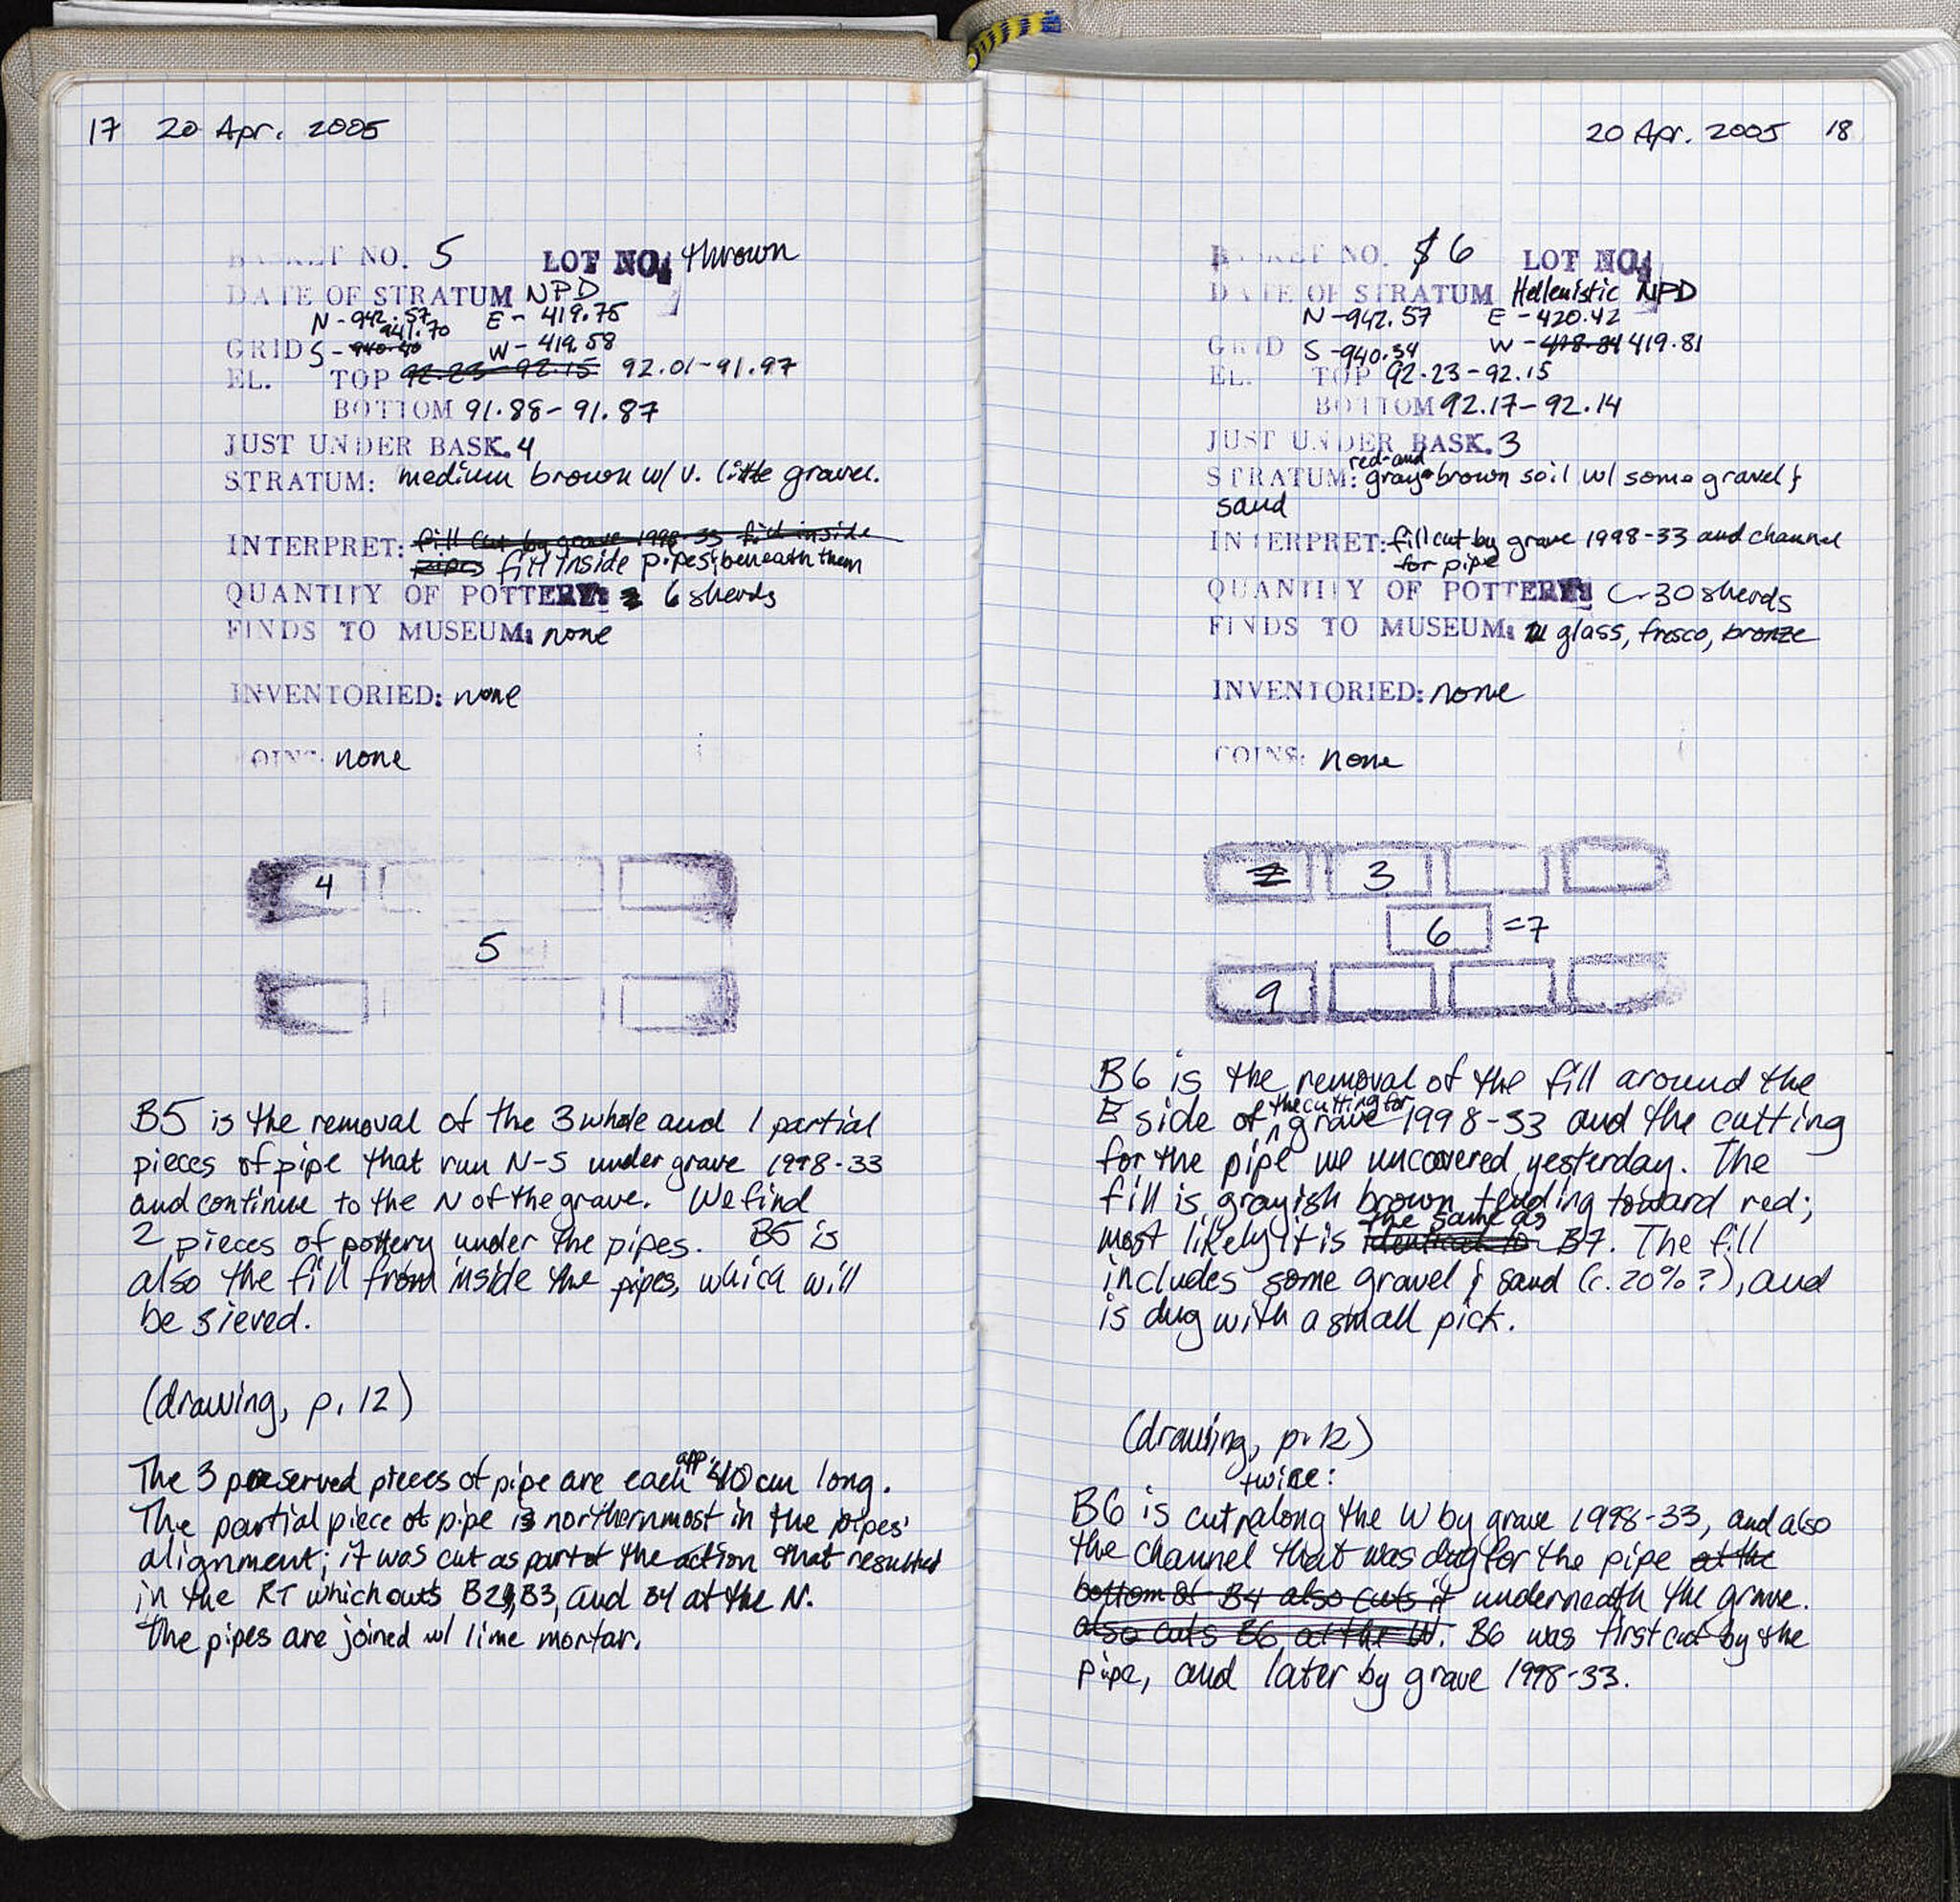 17 20 Apr. 2005
BASKET NO. 5 LOT NO. thrown
DATE OF STRATUM NPD
N-942.57 E-419.75
941.70
GRID S-940.40 W-419.58
EL. TOP 92.23-92.15 92.01-91.97
BOTTOM 91.88-91.87
JUST UNDER BASK. 4
STRATUM: medium brown w/ v. little gravel.
INTERPRET: fill cut by grave 1998-33 fill inside
pipes fill inside pipes & beneath them
QUANTITY OF POTTERY: 6 sherds
FINDS TO MUSEUM: none
INVENTORIED: none
COINS: none
4
5
B5 is the removal of the 3 whole and 1 partial
pieces of pipe that run N-S under grave 1998-33
and continue to the N of the grave. We find
2 pieces of pottery under the pipes. B5 is
also the fill from inside the pipes, which will
be sieved.
(drawing, p. 12)
The 3 preserved pieces of pipe are each app. 40 cm long.
The partial piece of pipe is northernmost in the pipes'
alignment; it was cut as part of the action that resulted
in the RT which cuts B2, B3, and B4 at the N.
The pipes are joined w/ lime mortar.
20 Apr. 2005 18
BASKET NO. 6 LOT NO.
DATE OF STRATUM Hellenistic NPD
N-942.57 E-420.42
GRID S-940.34 W-418.84 419.81
EL. TOP 92.23-92.15
BOTTOM 92.17-92.14
JUST UNDER BASK. 3
red-and
STRATUM: gray-brown soil w/ some gravel &
sand
INTERPRET: fill cut by grave 1998-33 and channel
for pipe
QUANTITY OF POTTERY: c. 30 sherds
FINDS TO MUSEUM: glass, fresco, bronze
INVENTORIED: none
COINS: none
2 3
6 =7
9
B6 is the removal of the fill around the
E side of the cutting for grave 1998-33 and the cutting
for the pipe we uncovered yesterday. The
fill is grayish brown tending toward red;
most likely it is identical to the same as B7. The fill
includes some gravel & sand (c. 20%?), and
is dug with a small pick.
(drawing, p. 12)
twice:
B6 is cut along the W by grave 1998-33, and also
the channel that was dug for the pipe at the
bottom of B4 also cuts it underneath the grave.
also cuts B6 at the W. B6 was first cut by the
pipe, and later by grave 1998-33.